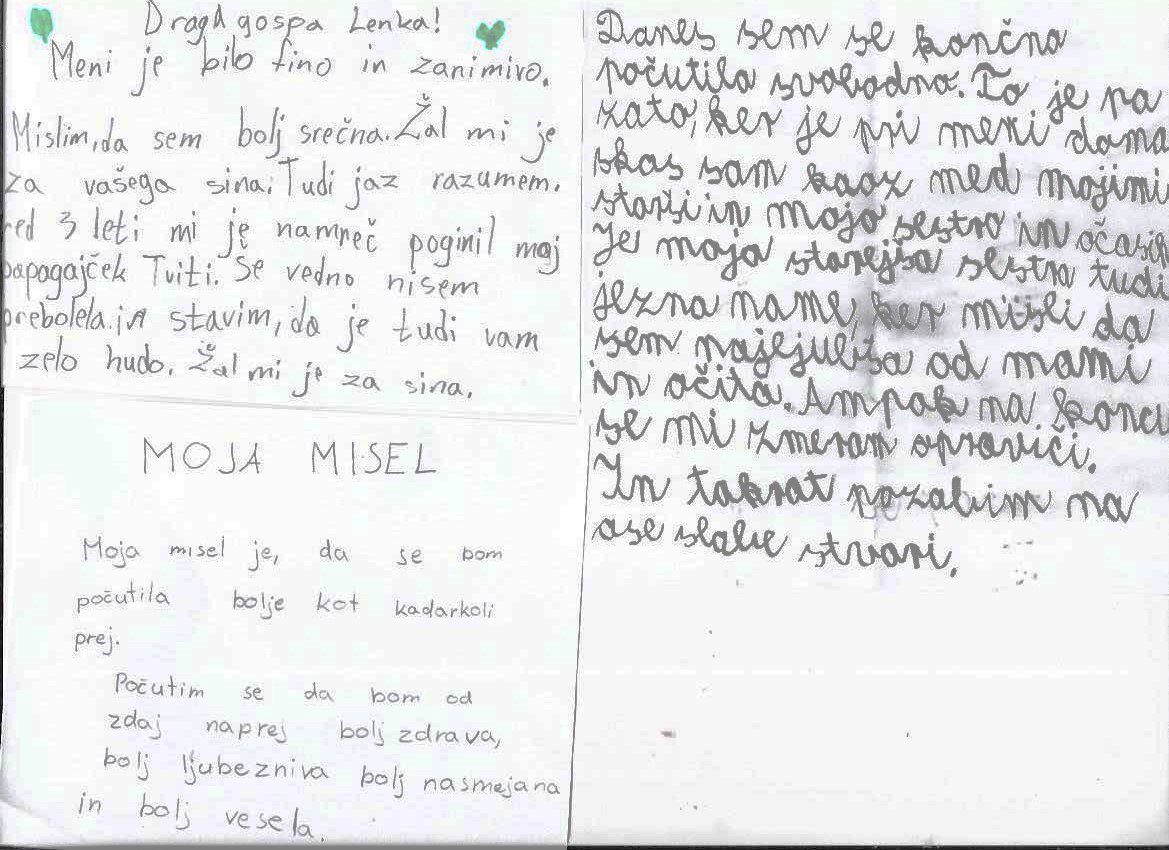 Draga gospa Lenka!
Meni je bilo fino in zanimivo.
Mislim, da sem bolj srečna. Žal mi je
za vašega sina. Tudi jaz razumem.
red 3 leti mi je namreč poginil moj
papagajček Tviti. Še vedno nisem
prebolela. JA stavim, da je tudi vam
zelo hudo. Žal mi je za sina.
MOJA MISEL
Moja misel je, da se bom
počutila bolje kot kadarkoli
prej.
Počutim se da bom od
zdaj naprej bolj zdrava,
bolj ljubezniva bolj nasmejana
in bolj vesela.
Danes sem se končno
počutila svobodno. To je pa
zato, ker je pri meni doma
skos sam kaoz med mojimi
starši in mojo sestro in očasih
je moja starejša sestra tudi
jezna name, ker misli da
sem od mami
in očita. Ampak na koncu
se mi zmeram opraviči.
In takrat pozabim na
vse slabe stvari.